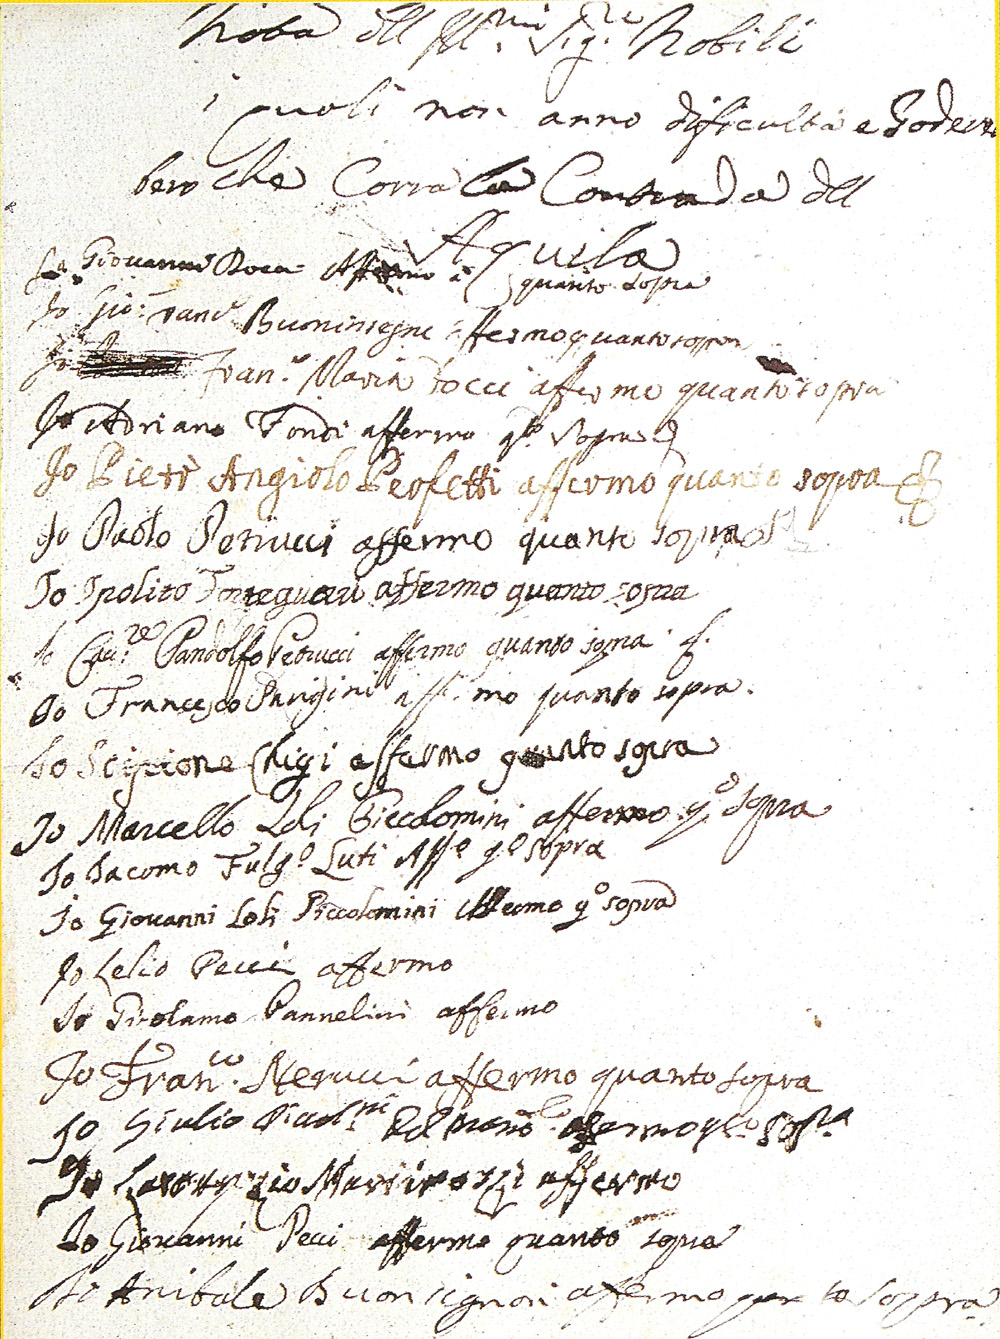 Nota dell Ill.mi Sig.re Nobili
i quali non anno dificultà e Goder
bero che Corra la Contrada dell
Aquila
Giovanni Affermo quanto sopra
Io Gio: Buoninsegni affermo quanto sopra
Io Fran.co Maria Tocci affermo quanto sopra
Io Adriano Fondi affermo q.to Sopra
Io Pietr Angiolo Perfetti affermo quanto sopra
Io Paolo Petrucci affermo quanto sopra
Io Ipolito Forteguerri affermo quanto sopra
Io Cav.re Pandolfo Petrucci affermo quanto sopra
Io Francesco Parigini aff.mo quanto sopra.
Io Scipione Chigi affermo quanto sopra
Io Marcello Loli Piccolomini affermo q.o sopra
Io Iacomo Fulg.o Luti Aff.o q.o sopra
Io Giovanni Loli Piccolomini Affermo q.o sopra
Io Lelio Pecci affermo
Io Girolamo Pannelini affermo
Io Fran.co Nerucci affermo quanto sopra
Io Giulio Picol.ni affermo q.to Sop.ra
Io Martinozzi affermo
Io Giovanni Peci affermo quanto sopra
Io Anibale Buonsignori affermo quanto sopra